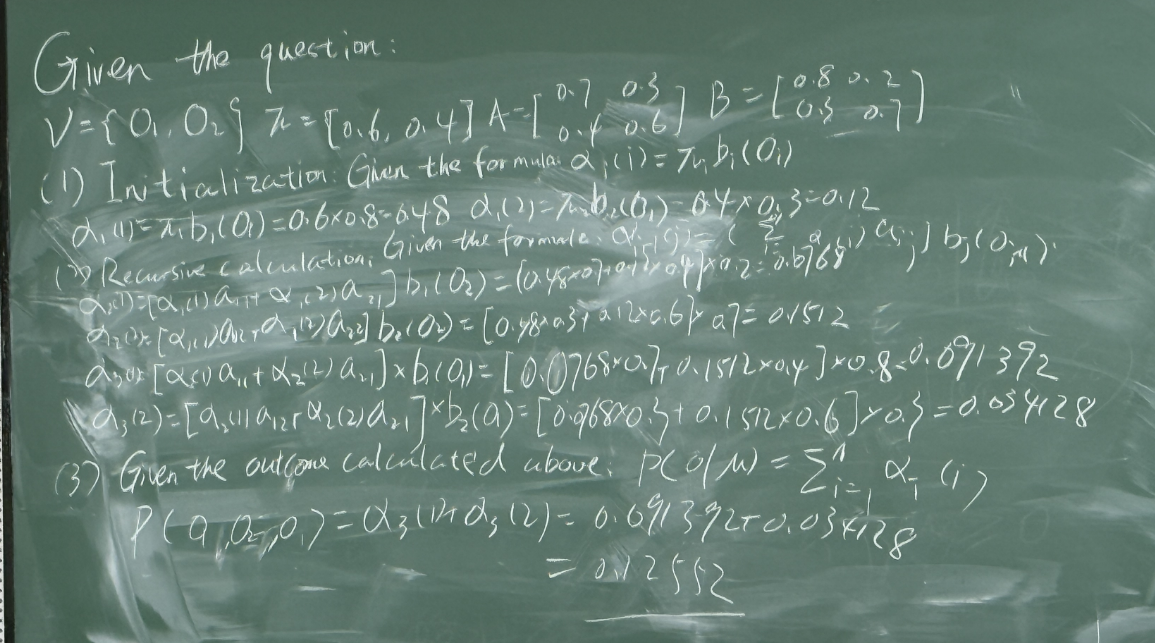 Given the question:
V={O₁, O₂} π=[0.6, 0.4] A=[0.7 0.3 0.4 0.6] B=[0.8 0.2 0.3 0.7]
(1) Initialization: Given the formula: α₁(i)=πᵢbᵢ(O₁)
α₁(1)=π₁b₁(O₁)=0.6×0.8=0.48 α₁(2)=π₂b₂(O₁)=0.4×0.3=0.12
(2) Recursive calculation: Given the formula
α₂(1)=[α₁(1)a₁₁+α₁(2)a₂₁]b₁(O₂)=[0.48×0.7+0.12×0.4]×0.2=0.0768
α₂(2)=[α₁(1)a₁₂+α₁(2)a₂₂]b₂(O₂)=[0.48×0.3+0.12×0.6]×0.7=0.1512
α₃(1)=[α₂(1)a₁₁+α₂(2)a₂₁]×b₁(O₁)=[0.0768×0.7+0.1512×0.4]×0.8=0.091392
α₃(2)=[α₂(1)a₁₂+α₂(2)a₂₁]×b₂(O₁)=[0.0768×0.3+0.1512×0.6]×0.3=0.034128
(3) Given the outcome calculated above: P(O|M)=Σᵢ₌₁ᴺ α_T(i)
P(O₁,O₂,O₁)=α₃(1)+α₃(2)=0.091392+0.034128
=0.12552